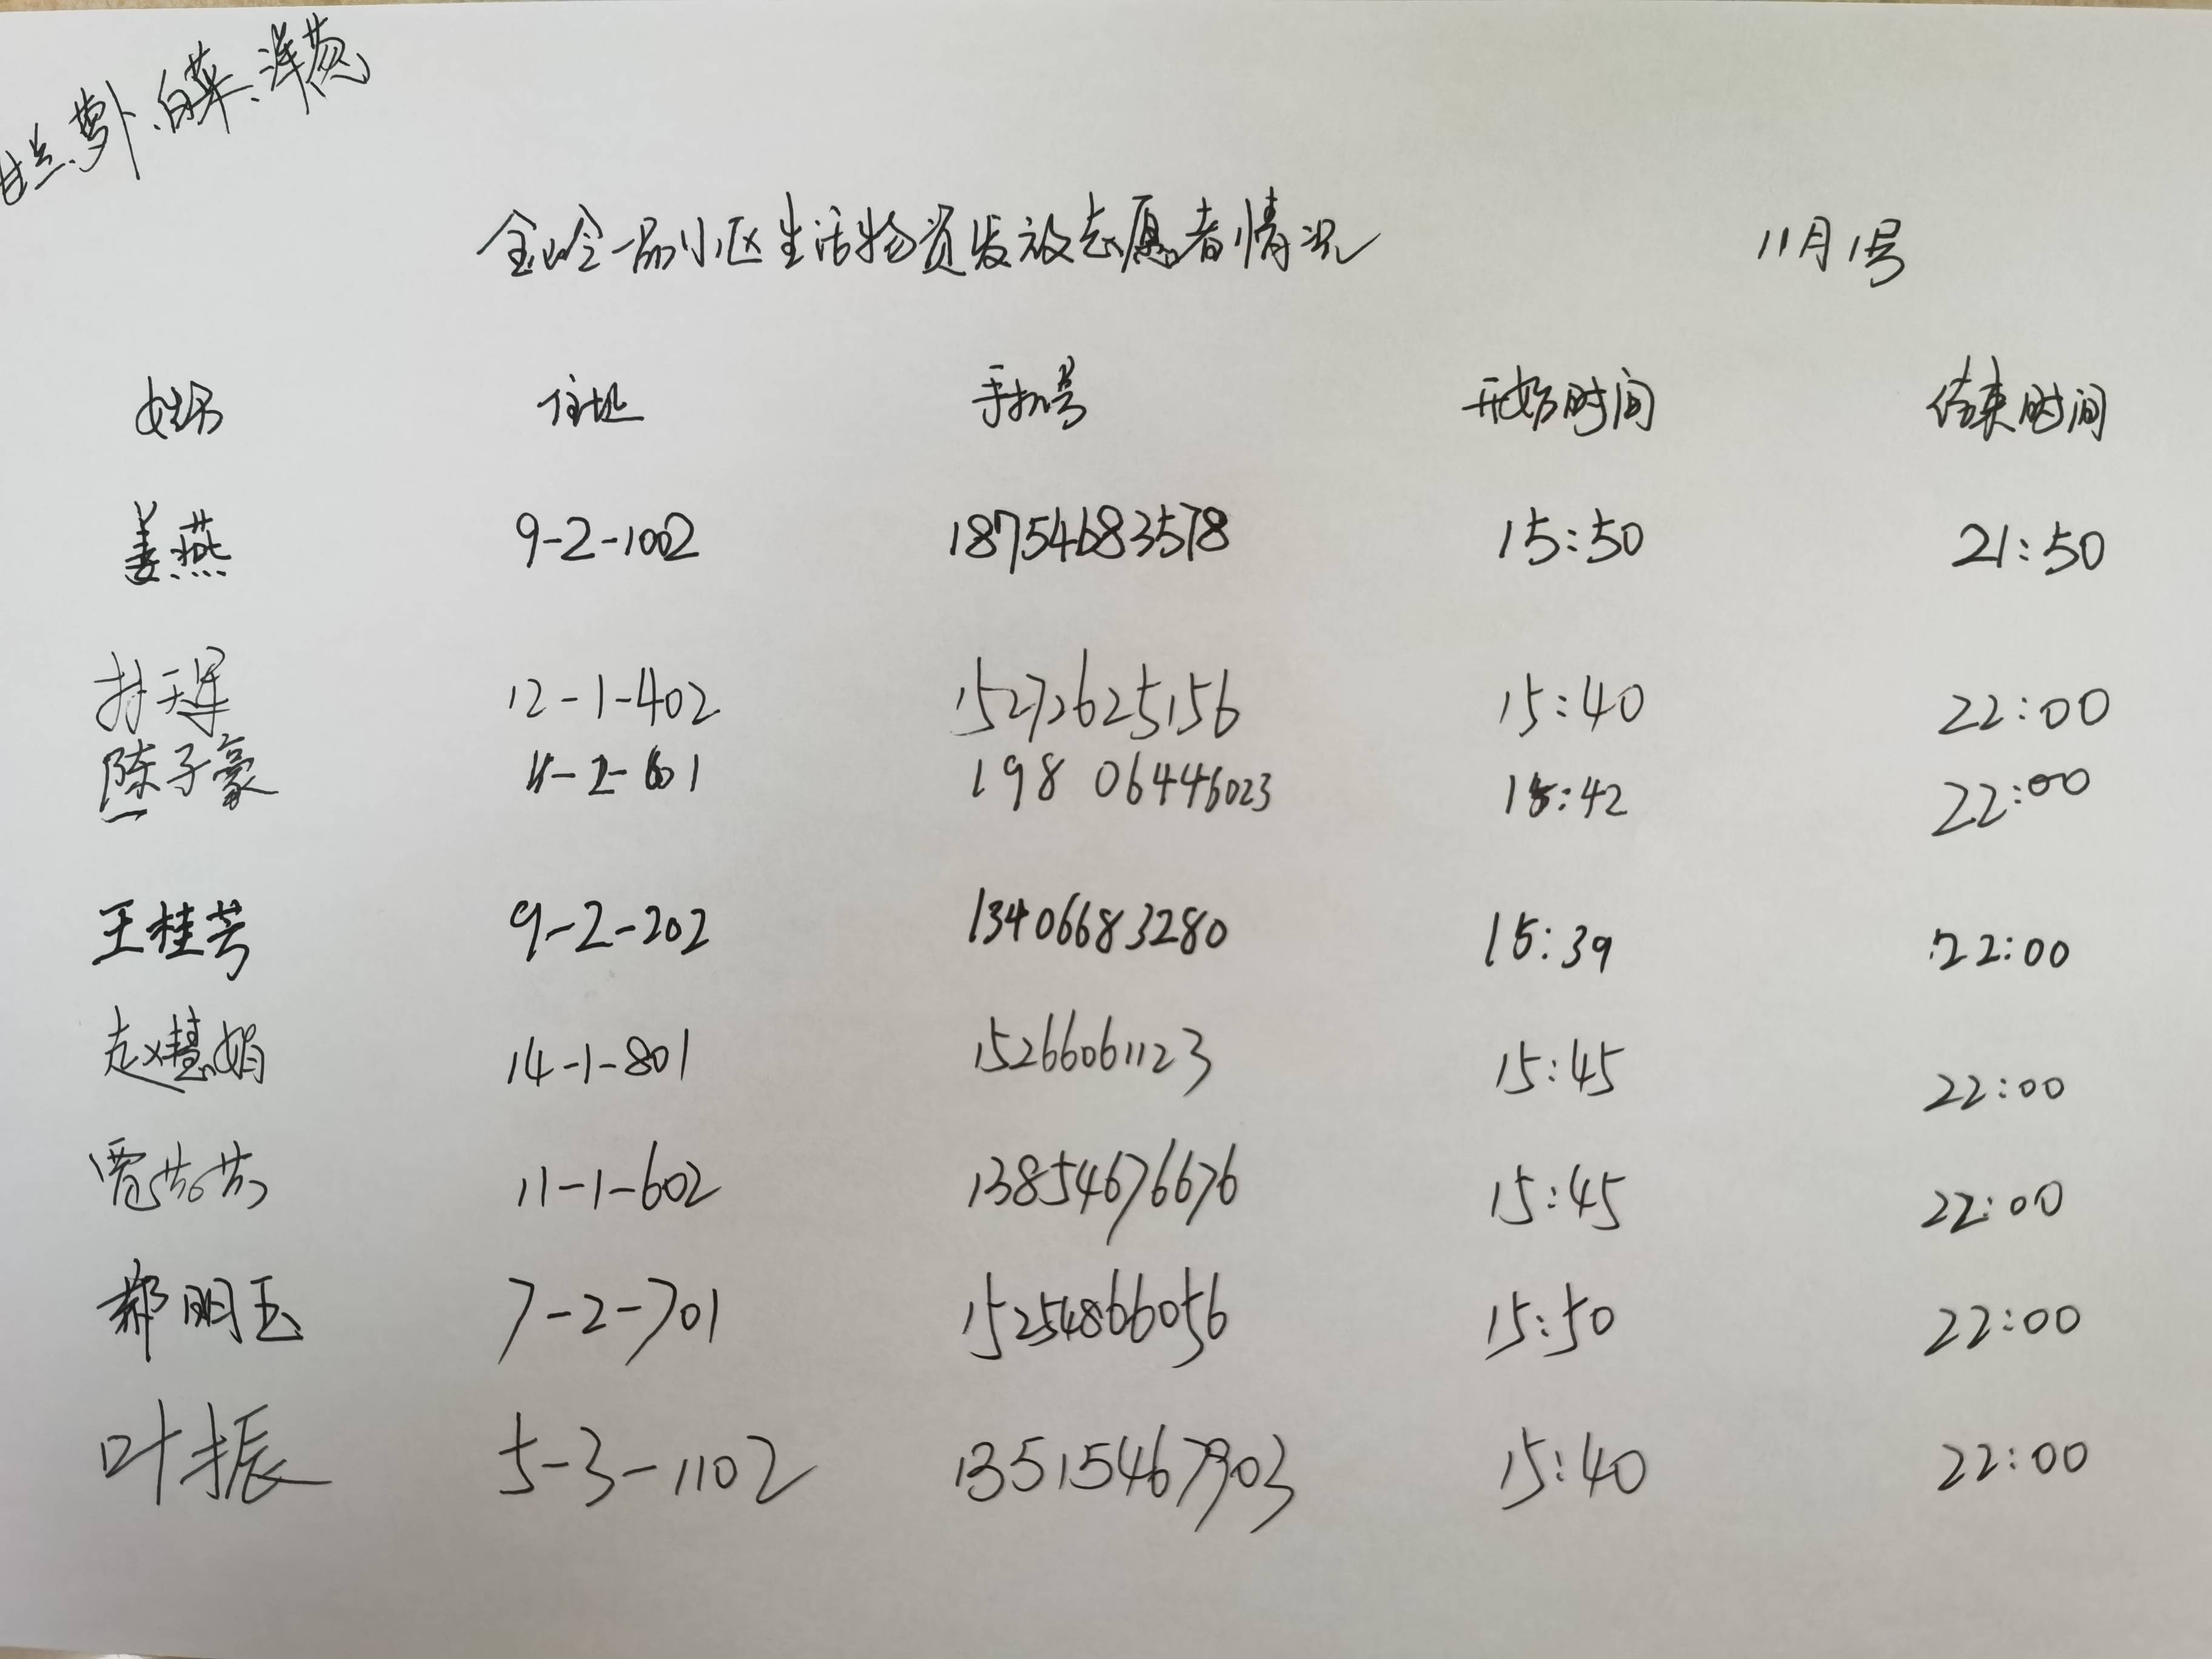 甘兰、萝卜、白菜、洋葱
金岭一品小区生活物资发放志愿者情况 11月1号
姓名 住址 手机号 开始时间 结束时间
姜燕 9-2-1002 18754683578 15:50 21:50
12-1-402 15272625156 15:40 22:00
陈子豪 2-601 19806446023 15:42 22:00
王桂芳 9-2-202 13406683280 15:39 22:00
赵慧娟 14-1-801 15266061123 15:45 22:00
贾芳芳 11-1-602 13854676676 15:45 22:00
郝明玉 7-2-701 15254866056 15:50 22:00
叶振 5-3-1102 13515467903 15:40 22:00